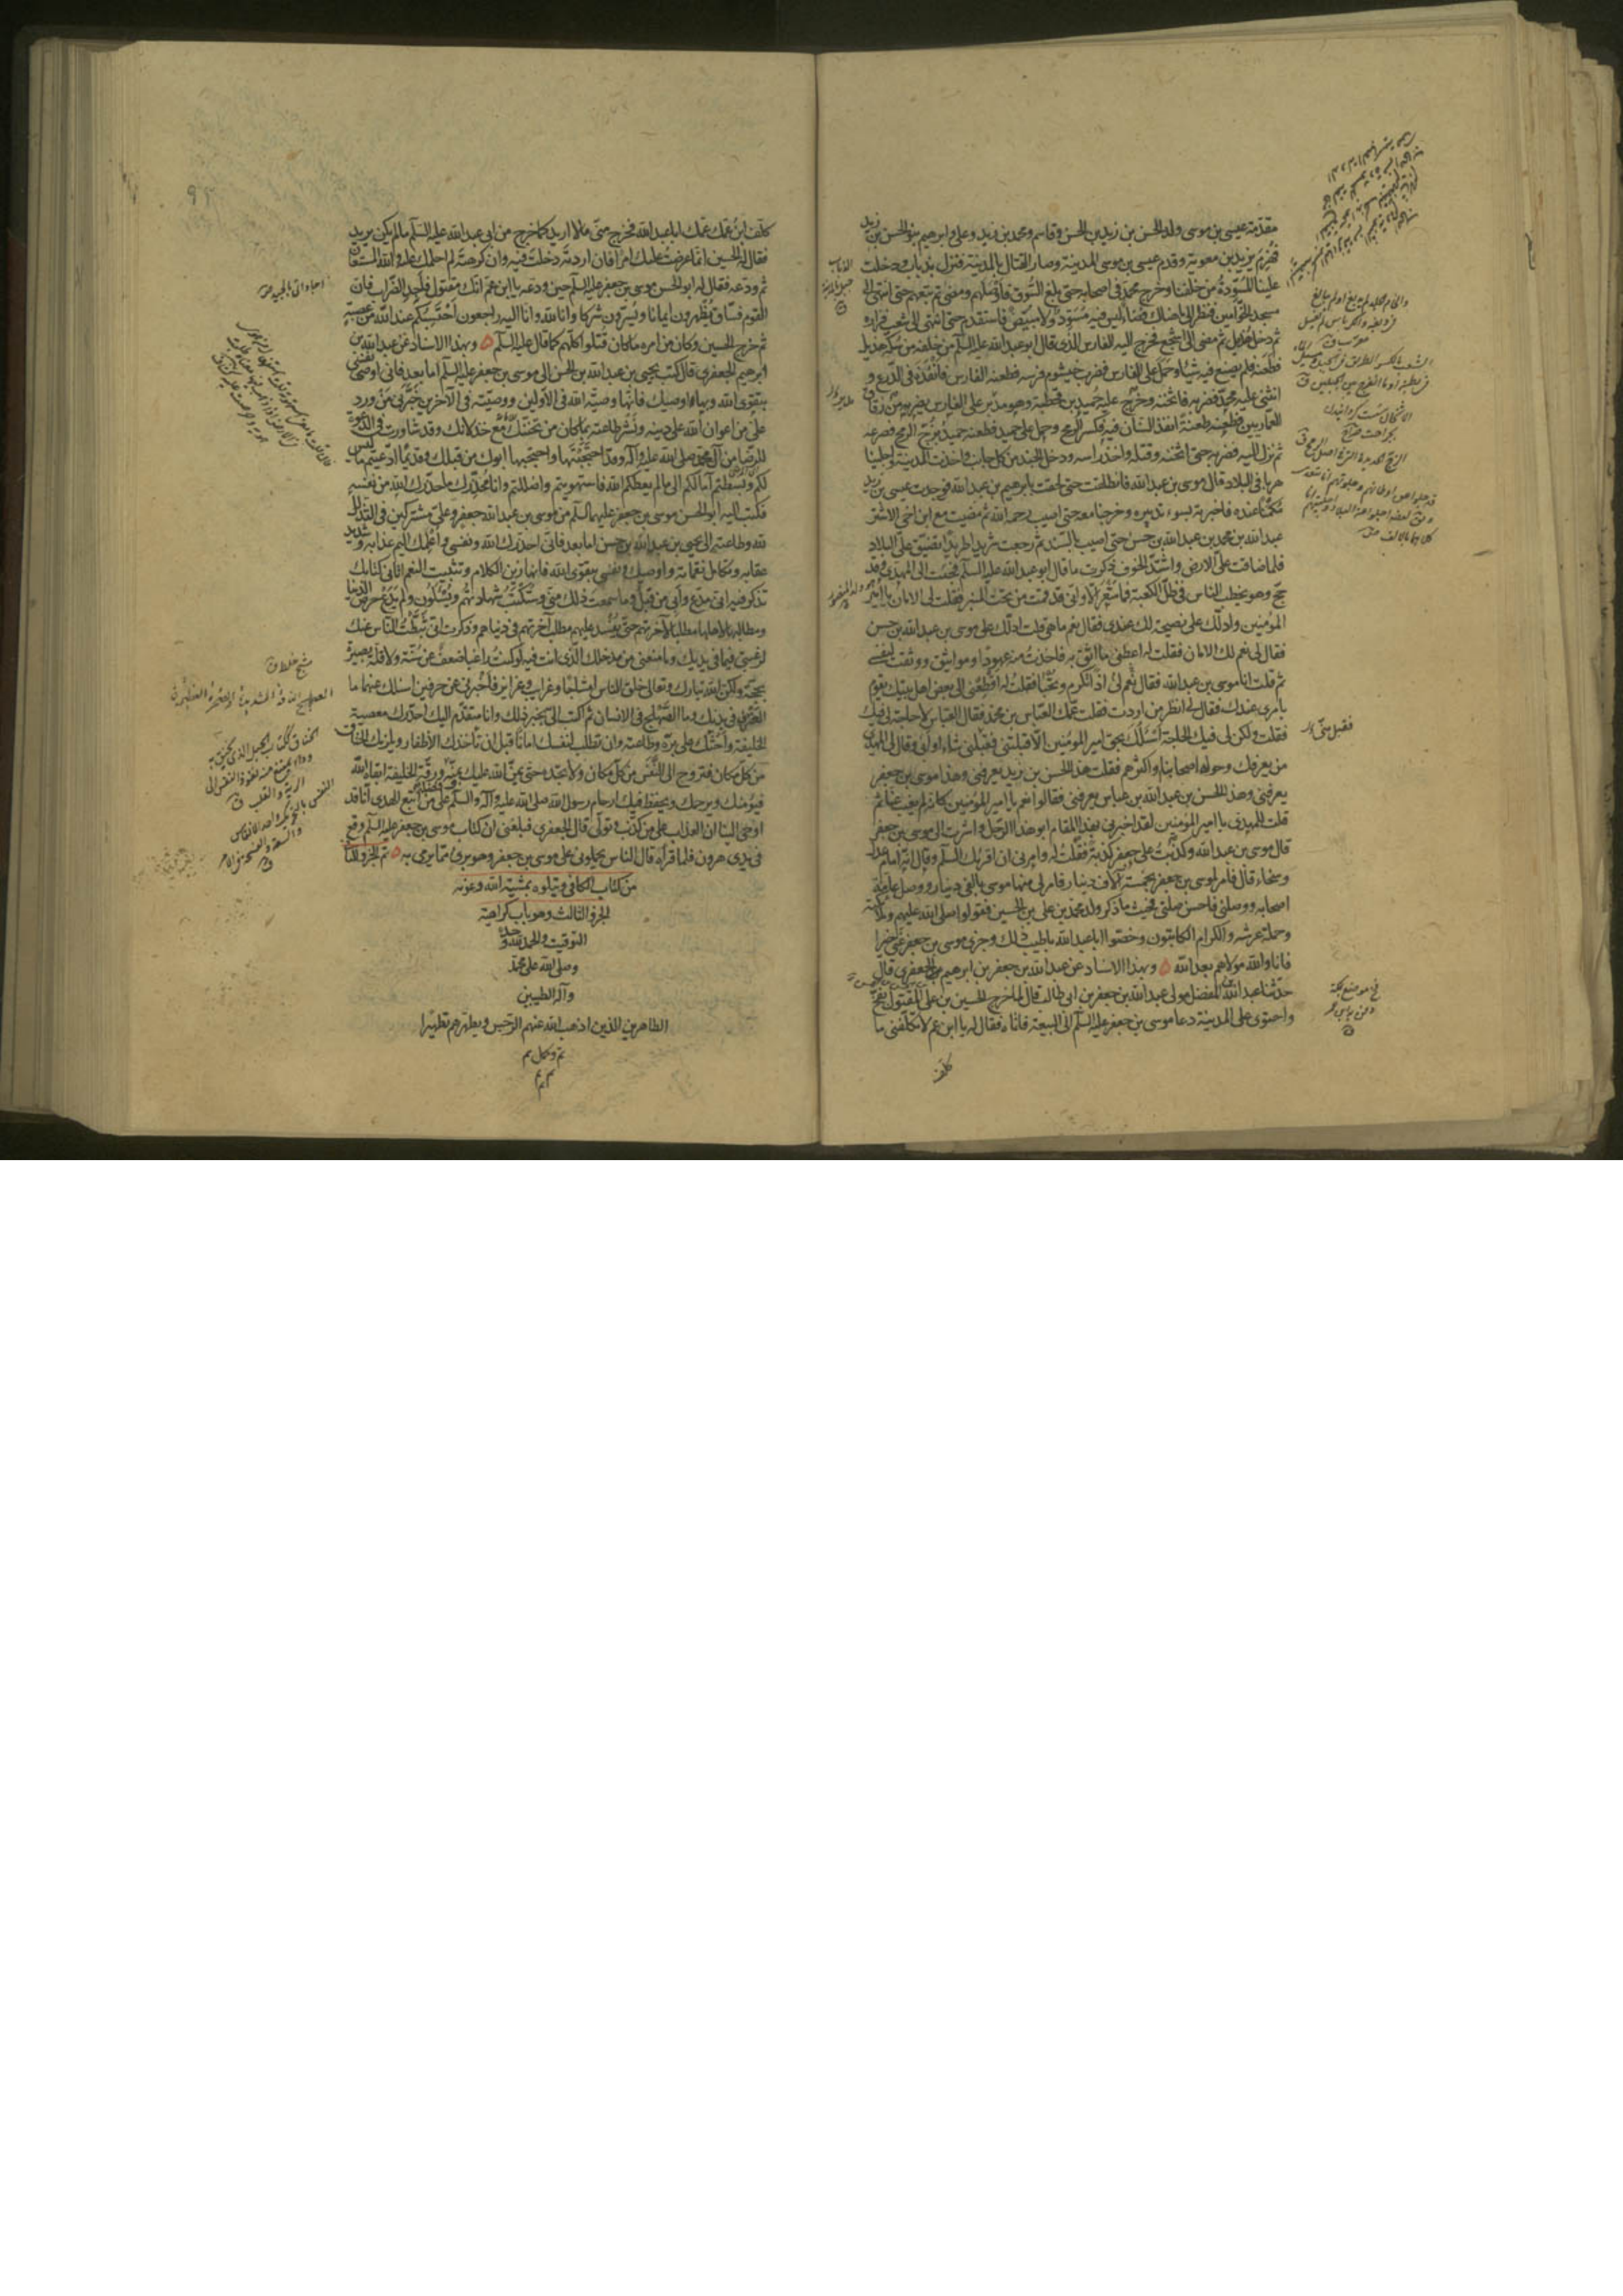 مقدمة عيسى بن موسى ولد الحسن بن زيد بن الحسن وقاسم ومحمد بن زيد وعلى وابرهيم بنو الحسن بن زيد
فهزم يزيد بن معوية وقدم عيسى بن موسى المدينة وصار القتال بالمدينة فنزل بذباب ودخلت
علينا المسودة من خلفنا وخرج محمد فى اصحابه حتى بلغ السوق فاوصلهم ومضى ثم تبعهم حتى انتهى الى
مسجد الخوامين فنظر الى ما هناك فضاء ليس فيه مسود ولا مبيض فاستقدم حتى انتهى الى شعب فزاره
ثم دخل هذيل ثم مضى الى اشجع فخرج اليه الفارس الذى قال ابو عبد الله عليه السلم من خلفه من سكة هذيل
فطعنه فلم يصنع فيه شيئا وحمل على الفارس فضرب خيشوم فرسه فطعنه الفارس فانفذه فى الدرع و
انثنى عليه محمد فضربه فاثخنه وخرج عليه حميد بن قحطبة وهو مدبر على الفارس يضربه من زقاق
العماريين فطعنه طعنة انفذ السنان فيه فكسر الرمح وحمل على حميد فطعنه حميد بزج الرمح فصرعه
ثم نزل اليه فضربه حتى اثخنه وقتله واخذ راسه ودخل الجند من كل جانب واخذت المدينة واجلينا
هربا فى البلاد قال موسى بن عبد الله فانطلقت حتى لحقت بابرهيم بن عبد الله فوجدت عيسى بن زيد
مكمنا عنده فاخبرته بسوء تدبيره وخرجنا معه حتى اصيب رحمه الله ثم مضيت مع ابن اخى الاشتر
عبد الله بن محمد بن عبد الله بن حسن حتى اصيب بالسند ثم رجعت شريدا طريدا تضيق على البلاد
فلما ضاقت على الارض واشتد الخوف ذكرت ما قال ابو عبد الله عليه السلم فجئت الى المهدى وقد
حج وهو يخطب الناس فى ظل الكعبة فما شعر الا وانى قد قمت من تحت المنبر فقلت لى الامان يا امير
المؤمنين وادلك على نصيحة لك عندى فقال نعم ما هى قلت ادلك على موسى بن عبد الله بن حسن
فقال لى نعم لك الامان فقلت له اعطنى ما اثق به فاخذت منه عهودا ومواثيق ووثقت لنفسى
ثم قلت انا موسى بن عبد الله فقال نعم لى اذا تكرم وتحبا فقلت له اقطعنى الى بعض اهل بيتك يقوم
بامرى عندك فقال لى انظر من اردت فقلت عمك العباس بن محمد فقال العباس لا حاجة لى فيك
فقلت ولكن لى فيك الحاجة اسئلك بحق امير المؤمنين الا قبلتنى فقبلنى شاء او ابى وقال لى المهدى
من يعرفك وحوله اصحابنا او اكثرهم فقلت هذا الحسن بن زيد يعرفنى وهذا موسى بن جعفر
يعرفنى وهذا الحسن بن عبد الله بن عباس يعرفنى فقالوا نعم يا امير المؤمنين كانه لم يغب عنا ثم
قلت للمهدى يا امير المؤمنين لقد اخبرنى بهذا المقام ابو هذا الرجل واشرت الى موسى بن جعفر
قال موسى بن عبد الله وكذبت على جعفر كذبة فقلت له وامرنى ان اقرئك السلم وقال انه امام عدل
وسخاء قال فامر لموسى بن جعفر بخمسة آلاف دينار فامر لى منها موسى بالفى دينار ووصل عامة
اصحابه ووصلنى فاحسن صلتى فحيث ما ذكر ولد محمد بن على بن الحسين فقولوا صلى الله عليهم وملائكته
وحملة عرشه والكرام الكاتبون وخصوا ابا عبد الله باطيب ذلك وجزى موسى بن جعفر عنى خيرا
فانا والله مولاهم بعد الله ٥ وبهذا الاسناد عن عبد الله بن جعفر بن ابرهيم الجعفرى قال
حدثنا عبد الله بن المفضل مولى عبد الله بن جعفر بن ابى طالب قال لما خرج الحسين بن على المقتول بفخ
واحتوى على المدينة دعا موسى بن جعفر عليه السلم الى البيعة فاتاه فقال له يا ابن عم لا تكلفنى ما
كلف
فقبل منى
فخ موضع بمكة
كلف ابن عمك عمك ابا عبد الله فخرج منى ما لا اريد كما خرج من ابى عبد الله عليه السلم ما لم يكن يريد
فقال له الحسين انما عرضت عليك امرا فان اردته دخلت فيه وان كرهته لم احملك عليه والله المستعان
ثم ودعه فقال له ابو الحسن موسى بن جعفر عليه السلم حين ودعه يا ابن عم انك مقتول فاجد الضراب فان
القوم فساق يظهرون ايمانا ويسترون شركا وانا لله وانا اليه راجعون احتسبكم عند الله من عصبة
ثم خرج الحسين وكان من امره ما كان قتلوا كلهم كما قال عليه السلم ٥ وبهذا الاسناد عن عبد الله بن
ابرهيم الجعفرى قال كتب يحيى بن عبد الله بن الحسن الى موسى بن جعفر عليه السلم اما بعد فانى اوصى نفسى
بتقوى الله وبها اوصيك فانها وصية الله فى الاولين ووصيته فى الآخرين خبرنى من ورد
على من اعوان الله على دينه ونشر طاعته بما كان من تحننك مع خذلانك وقد شاورت فى الدعوة
للرضا من آل محمد صلى الله عليه وآله وقد احتجبتها واحتجبها ابوك من قبلك وقديما ادعيتم ما ليس
لكم وبسطتم آمالكم الى ما لم يعطكم الله فاستهويتم واضللتم وانا محذرك ما حذرك الله من نفسه
فكتب اليه ابو الحسن موسى بن جعفر عليهما السلم من موسى بن عبد الله جعفر وعلى مشتركين فى التذلل
لله وطاعته الى يحيى بن عبد الله بن حسن اما بعد فانى احذرك الله ونفسى واعلمك اليم عذابه وشديد
عقابه وتكامل نقماته واوصيك ونفسى بتقوى الله فانها زين الكلام وتثبيت النعم اتانى كتابك
تذكر فيه انى مدع وابى من قبل وما سمعت ذلك منى وستكتب شهادتهم ويسئلون ولم يدع حرص الدنيا
ومطالبها لاهلها مطلبا لآخرتهم حتى يفسد عليهم مطلب آخرتهم فى دنياهم وذكرت انى ثبطت الناس عنك
لرغبتى فيما فى يديك وما منعنى من مدخلك الذى انت فيه لو كنت راغبا ضعف عن سنة ولا قلة بصيرة
بحجة ولكن الله تبارك وتعالى خلق الناس امشاجا وغرايب وغرايز فاخبرنى عن حرفين اسئلك عنهما ما
العترف فى بدنك وما الصهلج فى الانسان ثم اكتب الى بخبر ذلك وانا متقدم اليك احذرك معصية
الخليفة واحثك على بره وطاعته وان تطلب لنفسك امانا قبل ان تاخذك الاظفار ويلزمك الخناق
من كل مكان فتروح الى النفس من كل مكان ولا تجده حتى يمن الله عليك بمنه ورقة الخليفة ابقاه الله
فيؤمنك ويرحمك ويحفظ فيك ارحام رسول الله صلى الله عليه وآله والسلم على من اتبع الهدى انا قد
اوحى الينا ان العذاب على من كذب وتولى قال الجعفرى فبلغنى ان كتاب موسى بن جعفر عليه السلم وقع
فى يدى هرون فلما قراه قال الناس يحملونى على موسى بن جعفر وهو برئ مما يرمى به ٥ تم الجزو الثانى
من كتاب الكافى ويتلوه بمشية الله وعونه
الجزو الثالث وهو باب كراهية
التوقيت والحمد لله وحده
وصلى الله على محمد
وآله الطيبين
الطاهرين الذين اذهب الله عنهم الرجس ويطهرهم تطهيرا